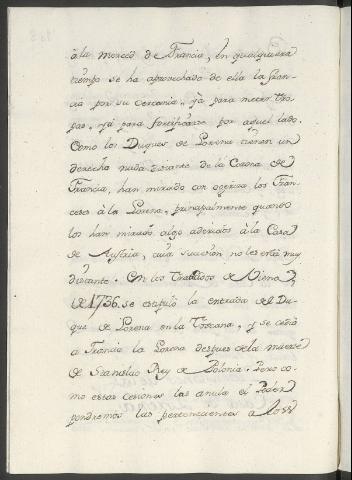 àla merced de Francia, en qualquiera
tiempo se ha aprovechado de ella la Fran-
cia por su cercania, ya para meter tro-
pas, ya para fortificarse por aquel lado.
Como los Duques de Lorena tienen un
derecho nada distante de la Corona de
Francia, han mirado con ogeriza los Fran-
ceses à la Lorena, principalmente quando
los han mirado algo adictos à la Casa
de Austria, cuia succesion no les está muy
distante. En los Tratados de Viena
de 1736. se estipuló la entrada del Du-
que de Lorena en la Toscana, y se cedia
a Francia la Lorena despues de la muerte
de Stanislao Rey de Polonia. Pero co-
mo estas cesiones las anula el Poder
pondremos las pertenencias a los